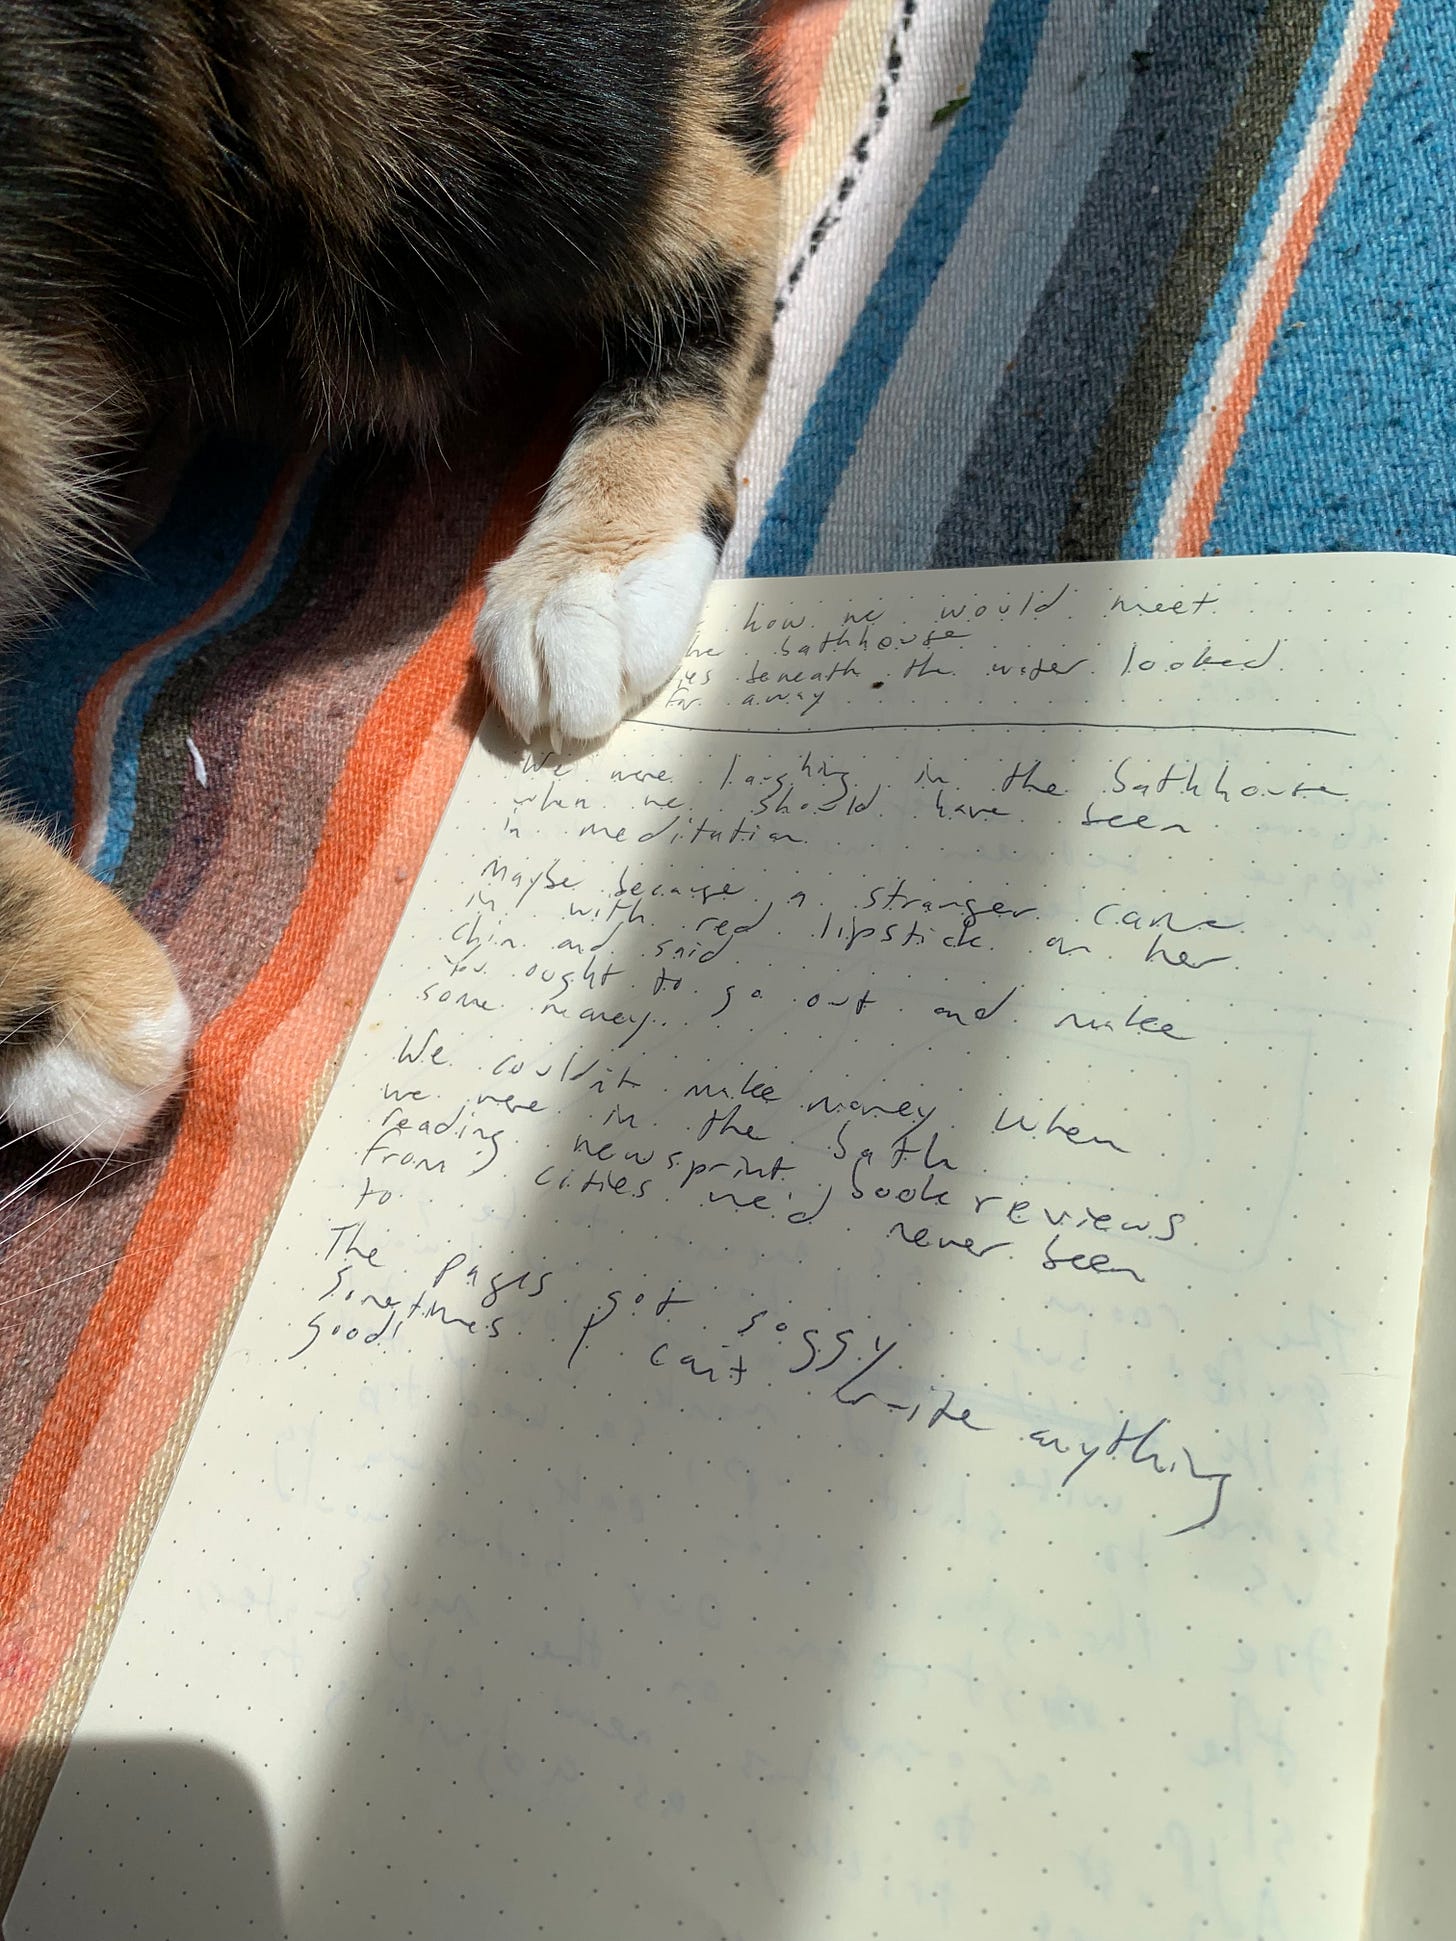 how we would meet
the bathhouse
beneath the water looked
far away
We were laughing in the bathhouse
when we should have been
in meditation
Maybe because a stranger came
in with red lipstick on her
chin and said
You ought to go out and make
some money.
We couldn't make money when
we were in the bath
reading newsprint book reviews
from cities we'd never been
to
The pages got soggy
Sometimes I can't write anything
good!